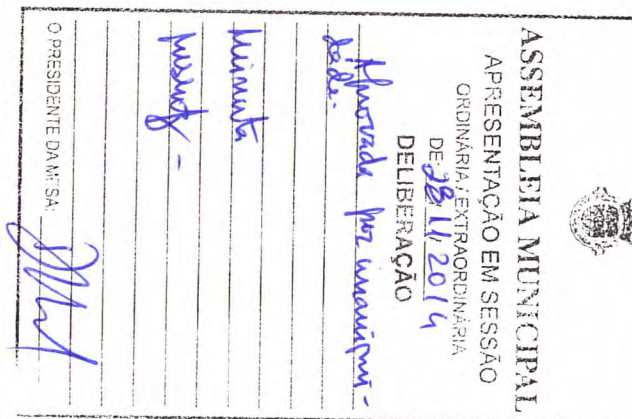 ASSEMBLEIA MUNICIPAL
APRESENTAÇÃO EM SESSÃO
ORDINÁRIA / EXTRAORDINÁRIA
DE: 28/11/2014
DELIBERAÇÃO
Aprovada por unanimi-
dade.
Minuta
O PRESIDENTE DA MESA: